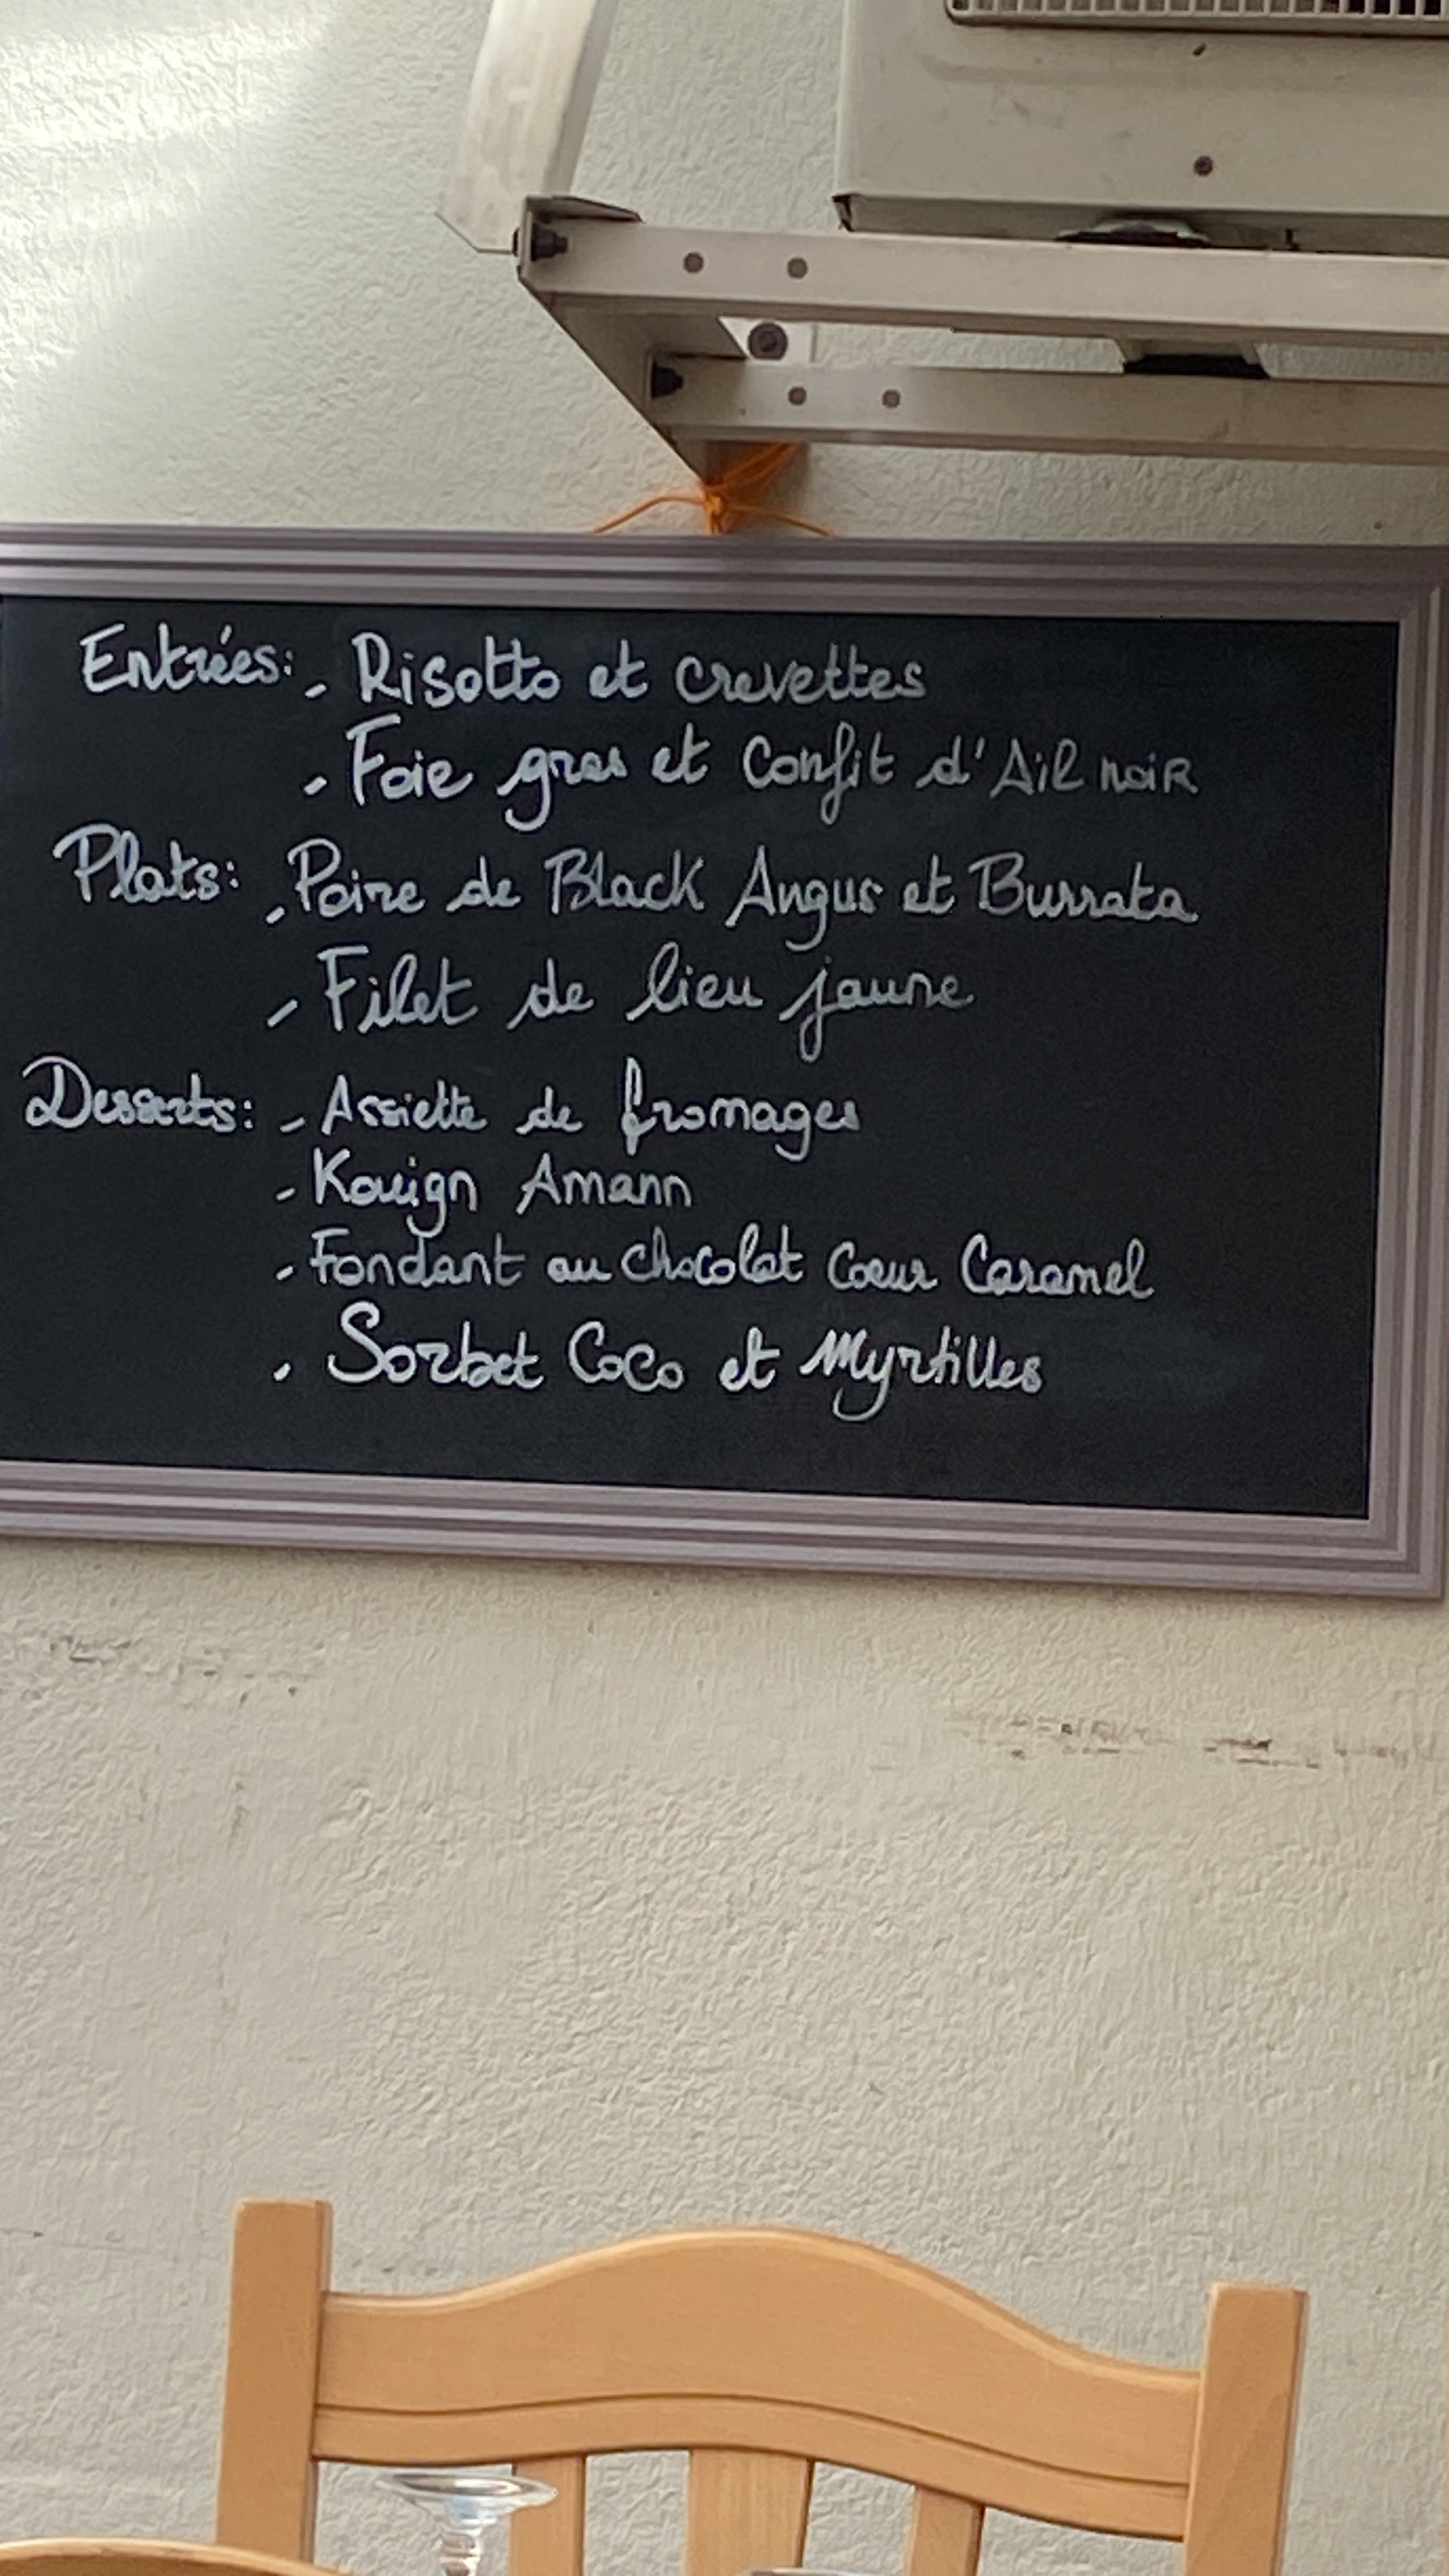 Entrées: - Risotto et crevettes
- Foie gras et Confit d'Ail noir
Plats: - Poire de Black Angus et Burrata
- Filet de lieu jaune
Desserts: - Assiette de fromages
- Kouign Amann
- Fondant au chocolat Coeur Caramel
- Sorbet Coco et Myrtilles